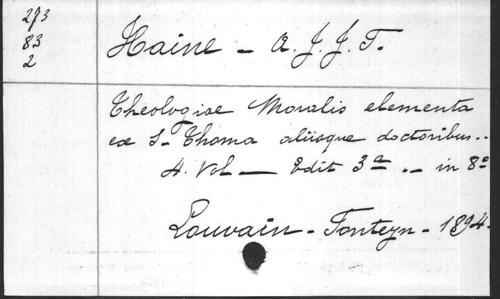 273
83
2
Haine - A. J. J. F.
Theologiae Moralis elementa
ex S- Thoma aliisque doctoribus..
4. Vol — Edit 3ª .. in 8º
Louvain - Fonteyn - 1894.